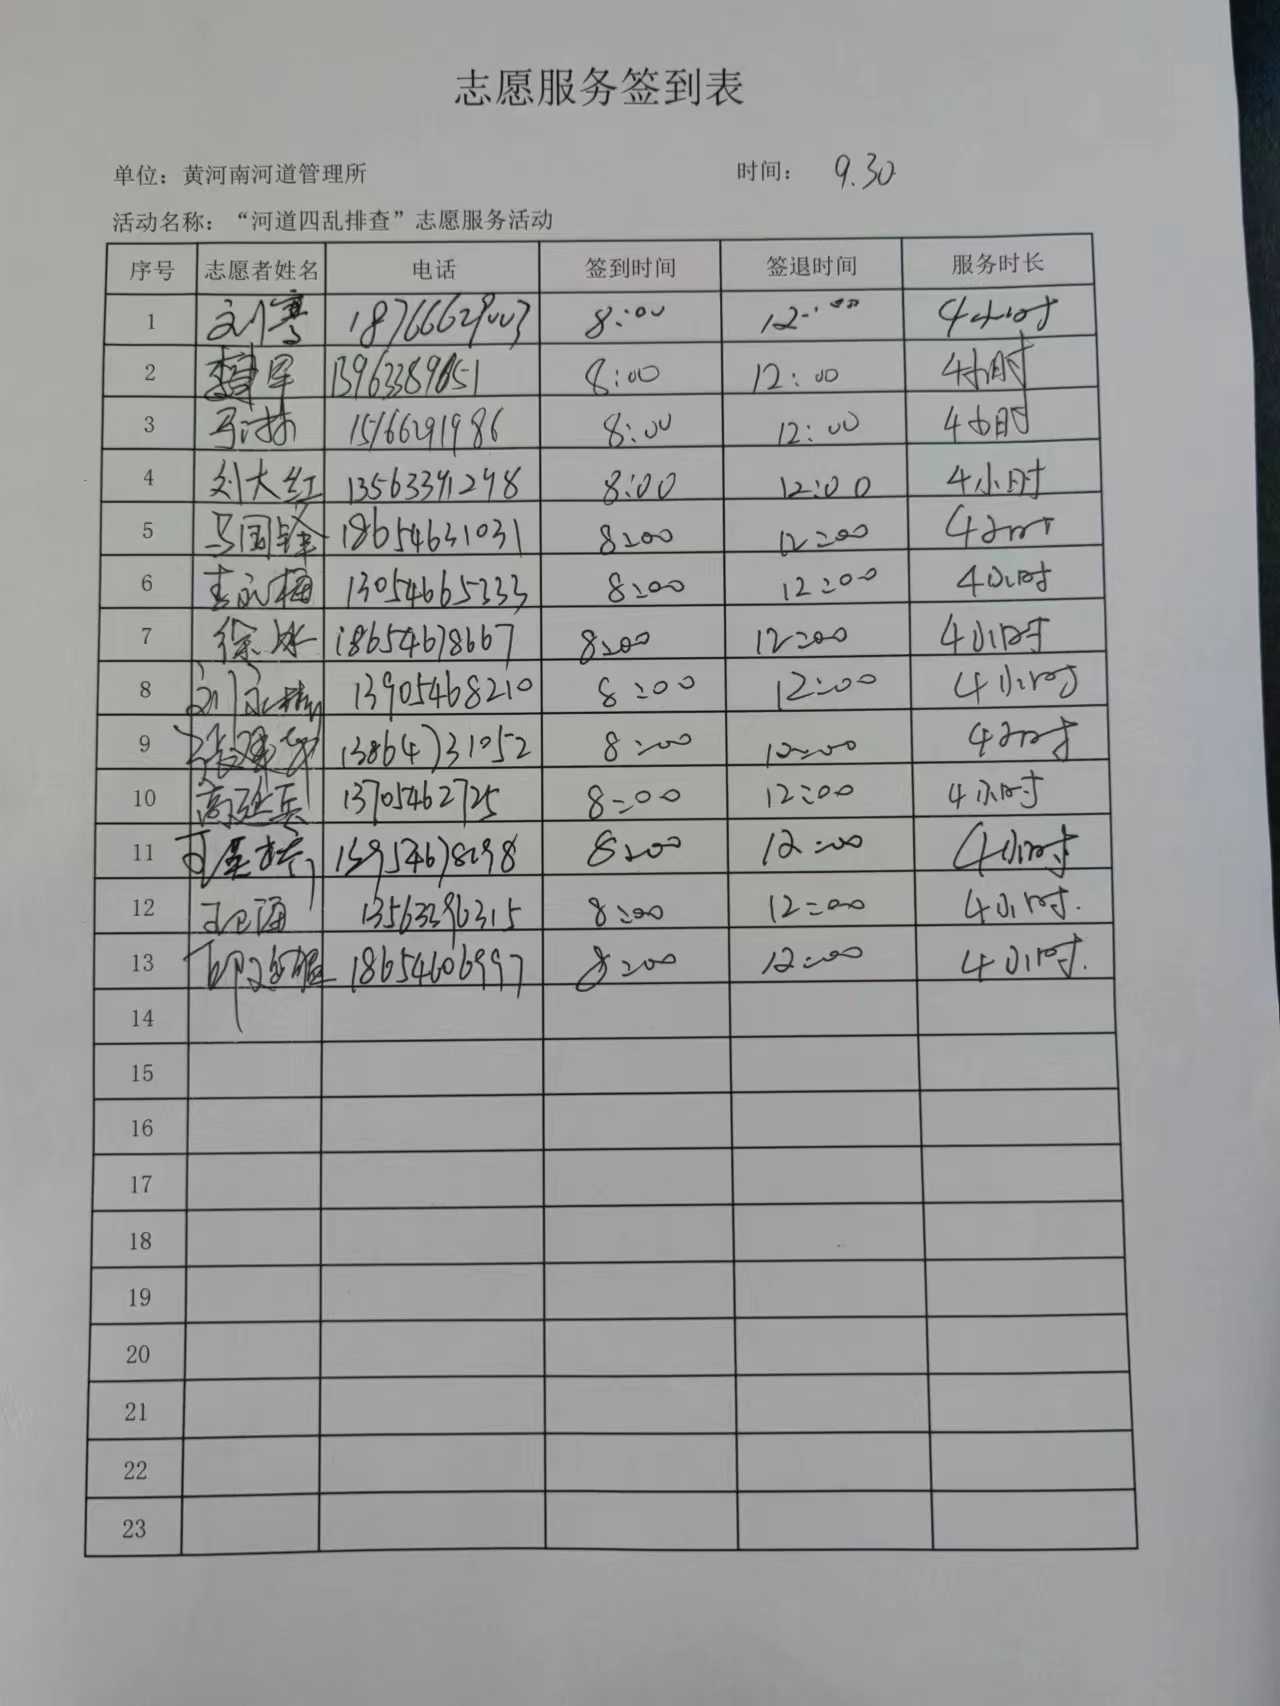 志愿服务签到表
单位：黄河南河道管理所 时间： 9.30
活动名称：“河道四乱排查”志愿服务活动
序号 志愿者姓名 电话 签到时间 签退时间 服务时长
1 8:00 12:00 4小时
2 8:00 12:00 4小时
3 15166291986 8:00 12:00 4小时
4 刘大红 13563391298 8:00 12:00 4小时
5 马国锋 18654631031 8:00 12:00 4小时
6 13054665333 8:00 12:00 4小时
7 徐冰 18654678667 8:00 12:00 4小时
8 13905468210 8:00 12:00 4小时
9 13864731052 8:00 12:00 4小时
10 高延兵 13705462725 8:00 12:00 4小时
11 13954678298 8:00 12:00 4小时
12 13563396315 8:00 12:00 4小时.
13 18654606997 8:00 12:00 4小时.
14
15
16
17
18
19
20
21
22
23